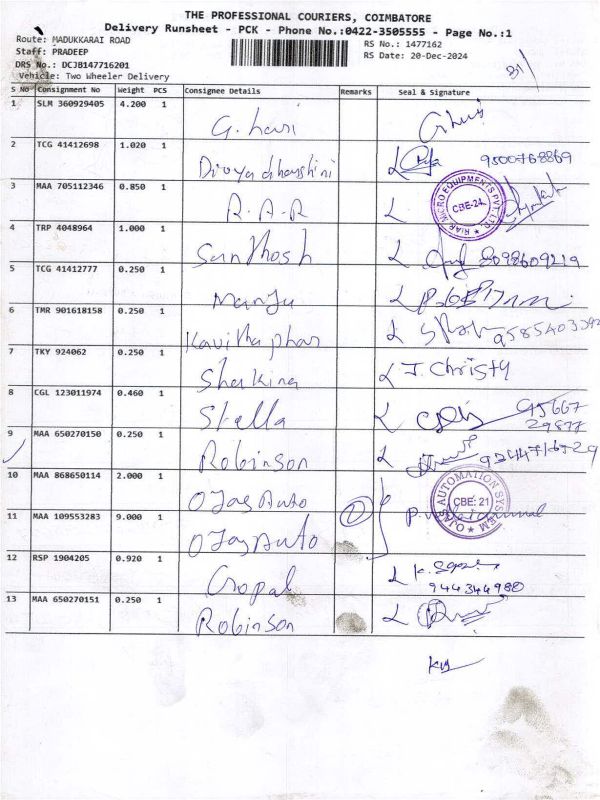 THE PROFESSIONAL COURIERS, COIMBATORE
Delivery Runsheet - PCK - Phone No.:0422-3505555 - Page No.:1
Route: MADUKKARAI ROAD
RS No.: 1477162
Staff: PRADEEP
RS Date: 20-Dec-2024
DRS No.: DCJB147716201
Vehicle: Two Wheeler Delivery
S No Consignment No Weight PCS Consignee Details Remarks Seal & Signature
1 SLM 360929405 4.200 1 G. hari
2 TCG 41412698 1.020 1 Divya dharshini 9500768869
3 MAA 705112346 0.850 1 R.A.R RIAR MICRO EQUIPMENTS PVT. LTD. CBE-24.
4 TRP 4048964 1.000 1 Santhosh 8098609219
5 TCG 41412777 0.250 1 Manju
6 TMR 901618158 0.250 1
7 TKY 924062 0.250 1 Sharkina J. Christy
8 CGL 123011974 0.460 1 Stella 95667 29877
9 MAA 650270150 0.250 1 Robinson
10 MAA 868650114 2.000 1 OJas Auto OJAS AUTOMATION SYSTEM CBE: 21
11 MAA 109553283 9.000 1 OJas Auto 2
12 RSP 1904205 0.920 1 Gopal 944344980
13 MAA 650270151 0.250 1 Robinson